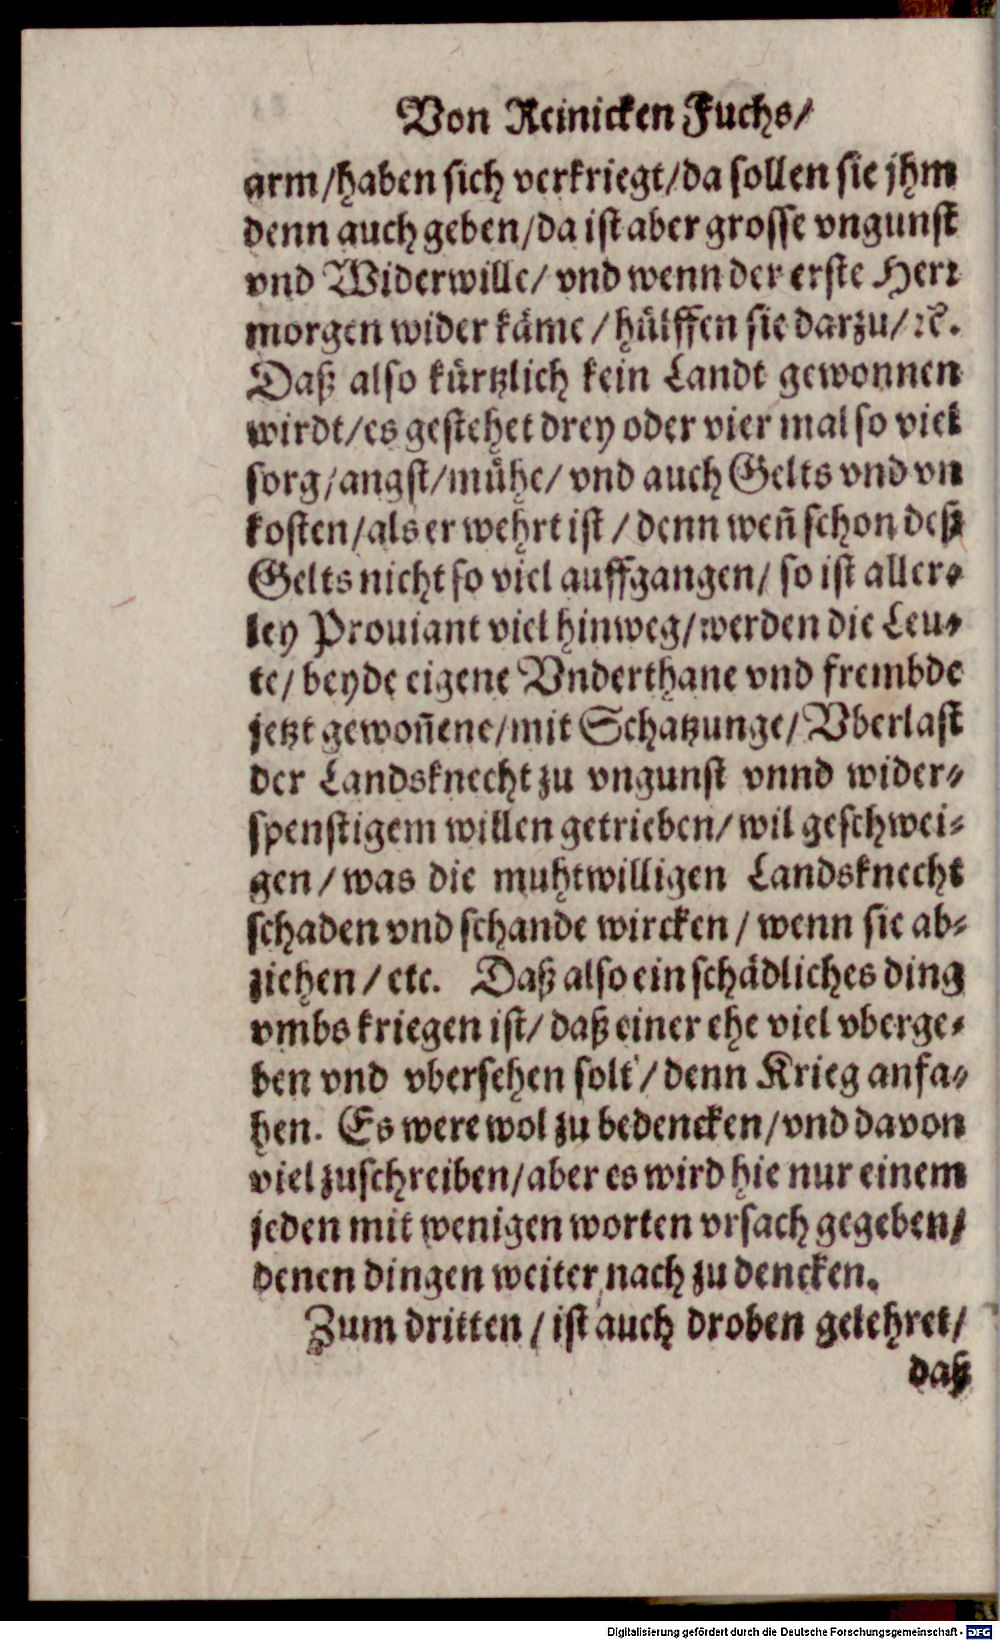 Von Reinicken Fuchs/
arm/haben sich verkriegt/da sollen sie jhm
denn auch geben/da ist aber grosse vngunst
vnd Widerwille/ vnd wenn der erste Herr
morgen wider käme / hülffen sie darzu/ ꝛc.
Daß also kürtzlich kein Landt gewonnen
wirdt/es gestehet drey oder vier mal so viel
sorg/angst/mühe/ vnd auch Gelts vnd vn
kosten/als er wehrt ist / denn weñ schon deß
Gelts nicht so viel auffgangen/ so ist aller-
ley Prouiant viel hinweg/werden die Leu-
te/ beyde eigene Vnderthane vnd frembde
jetzt gewoñene/mit Schatzunge/ Vberlast
der Landsknecht zu vngunst vnnd wider-
spenstigem willen getrieben/ wil geschwei-
gen/ was die muhtwilligen Landsknecht
schaden vnd schande wircken / wenn sie ab-
ziehen / etc. Daß also ein schädliches ding
vmbs kriegen ist/ daß einer ehe viel vberge-
ben vnd vbersehen solt / denn Krieg anfa-
hen. Es were wol zu bedencken/vnd davon
viel zuschreiben/aber es wird hie nur einem
jeden mit wenigen worten vrsach gegeben/
denen dingen weiter nach zu dencken.
Zum dritten / ist auch droben gelehret/
daß
Digitalisierung gefördert durch die Deutsche Forschungsgemeinschaft - DFG